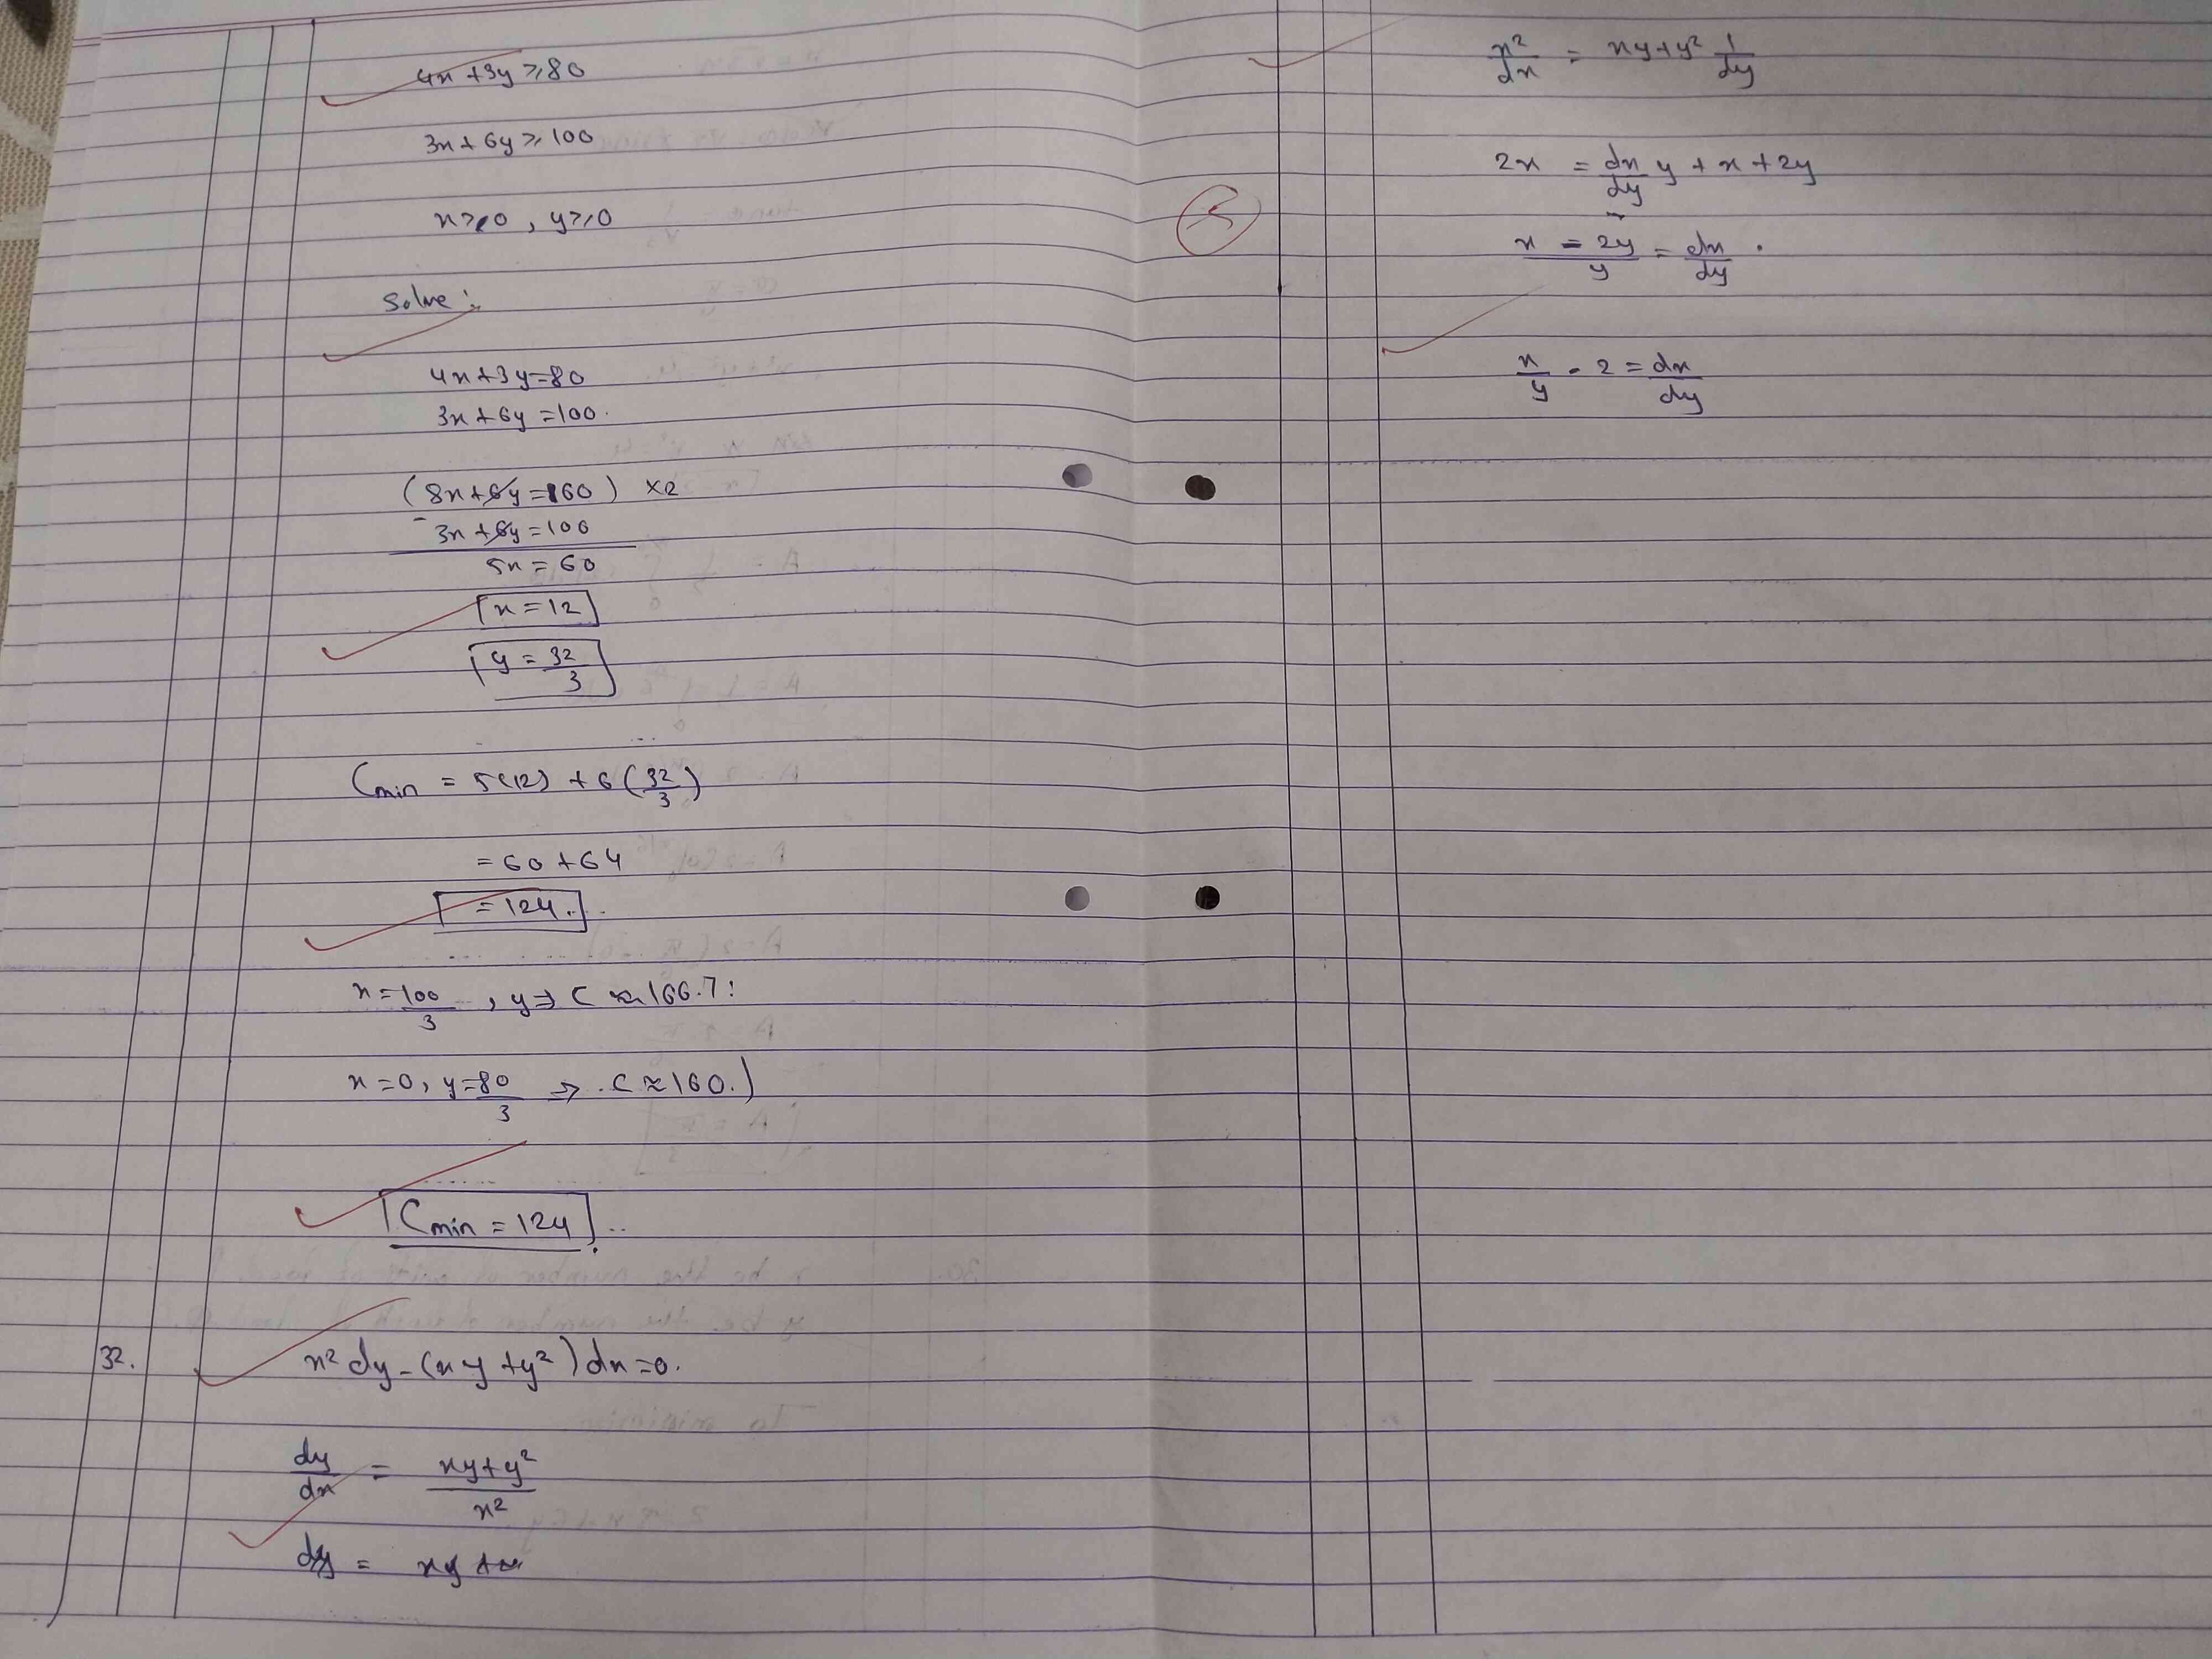 4x + 3y ≥ 80
3x + 6y ≥ 100
x ≥ 0 , y ≥ 0
Solve :
4x + 3y = 80
3x + 6y = 100.
(8x + 6y = 160) ×2
- 3x + 6y = 100
5x = 60
x = 12
y = 32/3
Cmin = 5(12) + 6(32/3)
= 60 + 64
= 124.
x = 100/3 , y ⇒ C ≈ 166.7
x = 0, y = 80/3 ⇒ C ≈ 160.)
Cmin = 124
32. x² dy - (xy + y²) dx = 0.
dy/dx = xy + y²/x²
dy = xy +
5
x²/dx = xy + y² 1/dy
2x = dx/dy y + x + 2y
x - 2y/y = dx/dy .
x/y - 2 = dx/dy